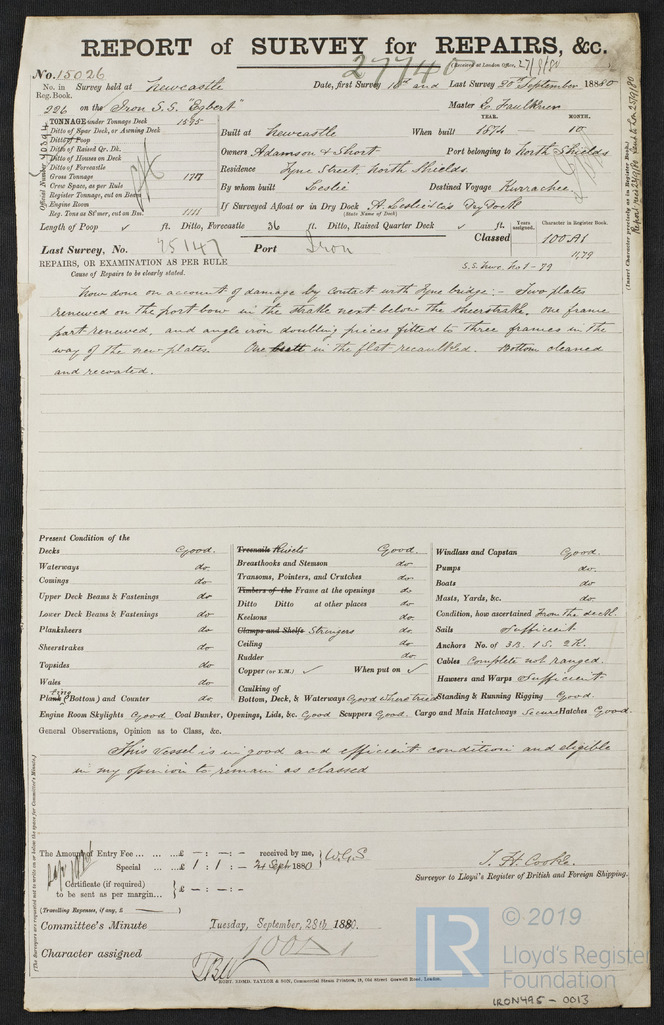 REPORT of SURVEY for REPAIRS, &c.
27740 (Received at London Office, 27/9/80
No. 15026
No. in Reg. Book. Survey held at Newcastle Date, first Survey 10th and Last Survey 20th September 1880
226 on the Iron S.S. "Egbert" Master E. Faulkner
TONNAGE under Tonnage Deck 1595
Ditto of Spar Deck, or Awning Deck
Ditto of Poop
Ditto of Raised Qr. Dk.
Ditto of Houses on Deck
Ditto of Forecastle
Gross Tonnage 1717
Crew Space, as per Rule
Register Tonnage, cut on Beam
Engine Room
Reg. Tons as St'mer, cut on Bm. 1111
Official Number
YEAR. MONTH.
Built at Newcastle When built 1874 10
Owners Adamson & Short Port belonging to North Shields
Residence Tyne Street, North Shields
By whom built Leslie Destined Voyage Kurrachee
If Surveyed Afloat or in Dry Dock A. Leslie & Co's Dry Dock
(State Name of Dock)
Length of Poop ✓ ft. Ditto, Forecastle 36 ft. Ditto, Raised Quarter Deck ✓ ft.
Years assigned. Character in Register Book.
Classed 100A1
11,79
S.S. Nwc. No1-79
Last Survey, No. 75147 Port Iron
(Insert Character precisely as in Register Book.)
REPAIRS, OR EXAMINATION AS PER RULE
Cause of Repairs to be clearly stated.
Now done on account of damage by contact with Tyne bridge:- Two plates
renewed on the port bow in the strake next below the sheerstrake. One frame
part renewed, and angle iron doubling pieces fitted to three frames in the
way of the new plates. One in the flat recaulked. Bottom cleaned
and recoated.
Present Condition of the
Decks Good.
Waterways do
Comings do
Upper Deck Beams & Fastenings do
Lower Deck Beams & Fastenings do
Planksheers do
Sheerstrakes do
Topsides do
Wales do
Plating (Bottom) and Counter do
Treenails Rivets Good.
Breasthooks and Stemson do
Transoms, Pointers, and Crutches do
Timbers of the Frame at the openings do
Ditto Ditto at other places do
Keelsons do
Clamps and Shelfs Stringers do
Ceiling do
Rudder do
Copper (or Y.M.) ✓ When put on ✓
Caulking of
Bottom, Deck, & Waterways Good where tried
Windlass and Capstan Good.
Pumps do.
Boats do
Masts, Yards, &c. do
Condition, how ascertained From the deck
Sails Sufficient
Anchors No. of 3B. 1S. 2K.
Cables Complete not ranged.
Hawsers and Warps Sufficient
Standing & Running Rigging Good.
Engine Room Skylights Good Coal Bunker, Openings, Lids, &c. Good Scuppers Good. Cargo and Main Hatchways Secure Hatches Good.
General Observations, Opinion as to Class, &c.
This vessel is in good and efficient condition and eligible
in my opinion to remain as classed
The Amount of Entry Fee ... ... ...£ – : – : – received by me, W.G.S
Special ... ...£ 1 : 1 : – 24 Sept 1880
Certificate (if required) to be sent as per margin... £ – : – : –
(Travelling Expenses, if any, £ —— )
T. H. Cooke.
Surveyor to Lloyd's Register of British and Foreign Shipping.
Committee's Minute Tuesday, September, 28th 1880.
Character assigned 100A1
(The Surveyors are requested not to write on or below the space for Committee's Minute.)
ROBT. EDMD. TAYLOR & SON, Commercial Steam Printers, 19, Old Street Goswell Road, London.
LR © 2019
Lloyd's Register
Foundation
IRON495-0013